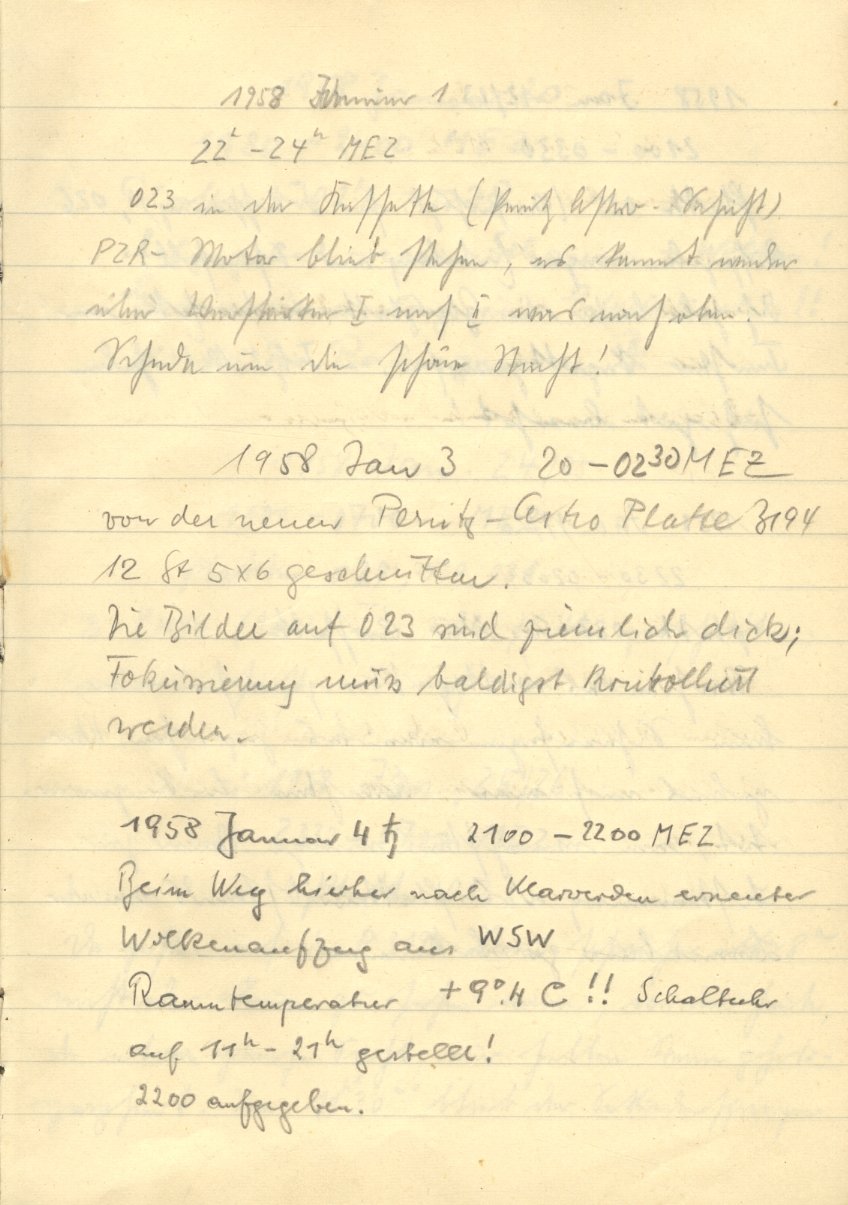 1958 Januar 1
22ʰ – 24ʰ MEZ
023 in der Kassette (Perutz Astro-Schicht)
PZR-Motor blieb stehen, es kommt weder
über Verstärker I noch II was nach oben.
Schade um die schöne Nacht!
1958 Jan 3 20 – 02³⁰ MEZ
von der neuen Perutz-Astro Platte 3194
12 St 5x6 geschnitten.
Die Bilder auf 023 sind ziemlich dick;
Fokussierung muss baldigst kontrolliert
werden.
1958 Januar 4 ♄ 2100 – 2200 MEZ
Beim Weg hierher nach Klarwerden erneuter
Wolkenaufzug aus WSW
Raumtemperatur +9°.4 C!! Schaltuhr
auf 11ʰ – 21ʰ gestellt!
2200 aufgegeben.